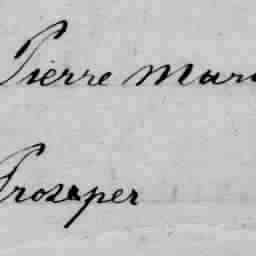 Pierre Mari
Prosper